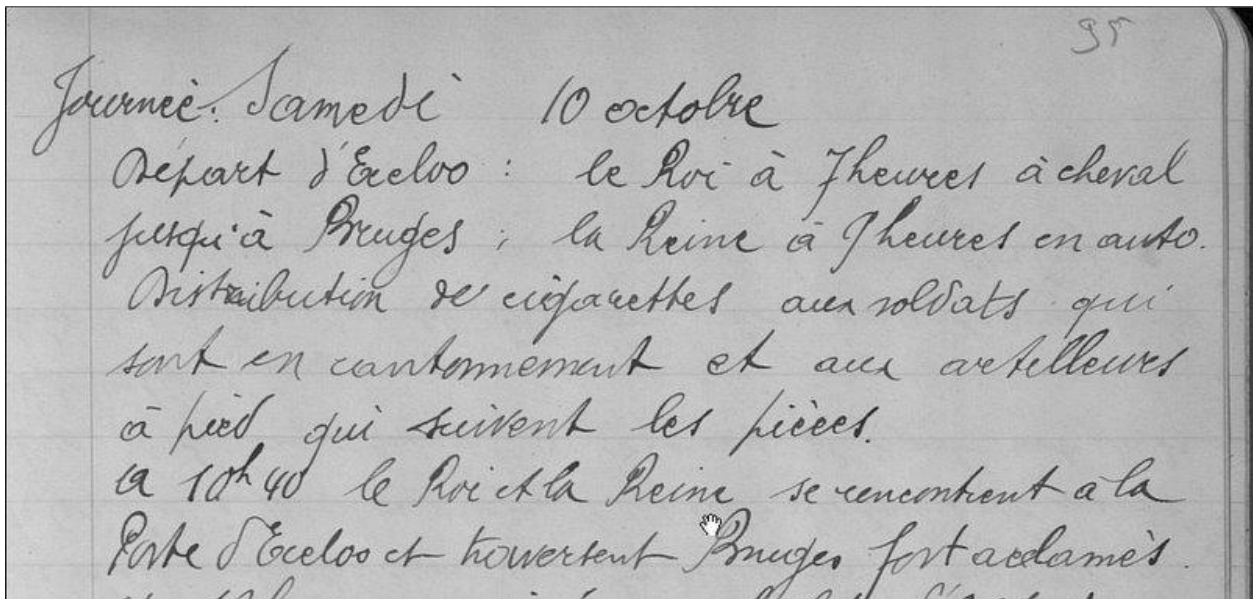 95
Journée: Samedi 10 octobre
Départ d'Eecloo : le Roi à 7 heures à cheval
jusqu'à Bruges ; la Reine à 9 heures en auto.
Distribution de cigarettes aux soldats qui
sont en cantonnement et aux artilleurs
à pied qui suivent les pièces.
A 10h40 le Roi et la Reine se rencontrent à la
Porte d'Eecloo et traversent Bruges fort acclamés.